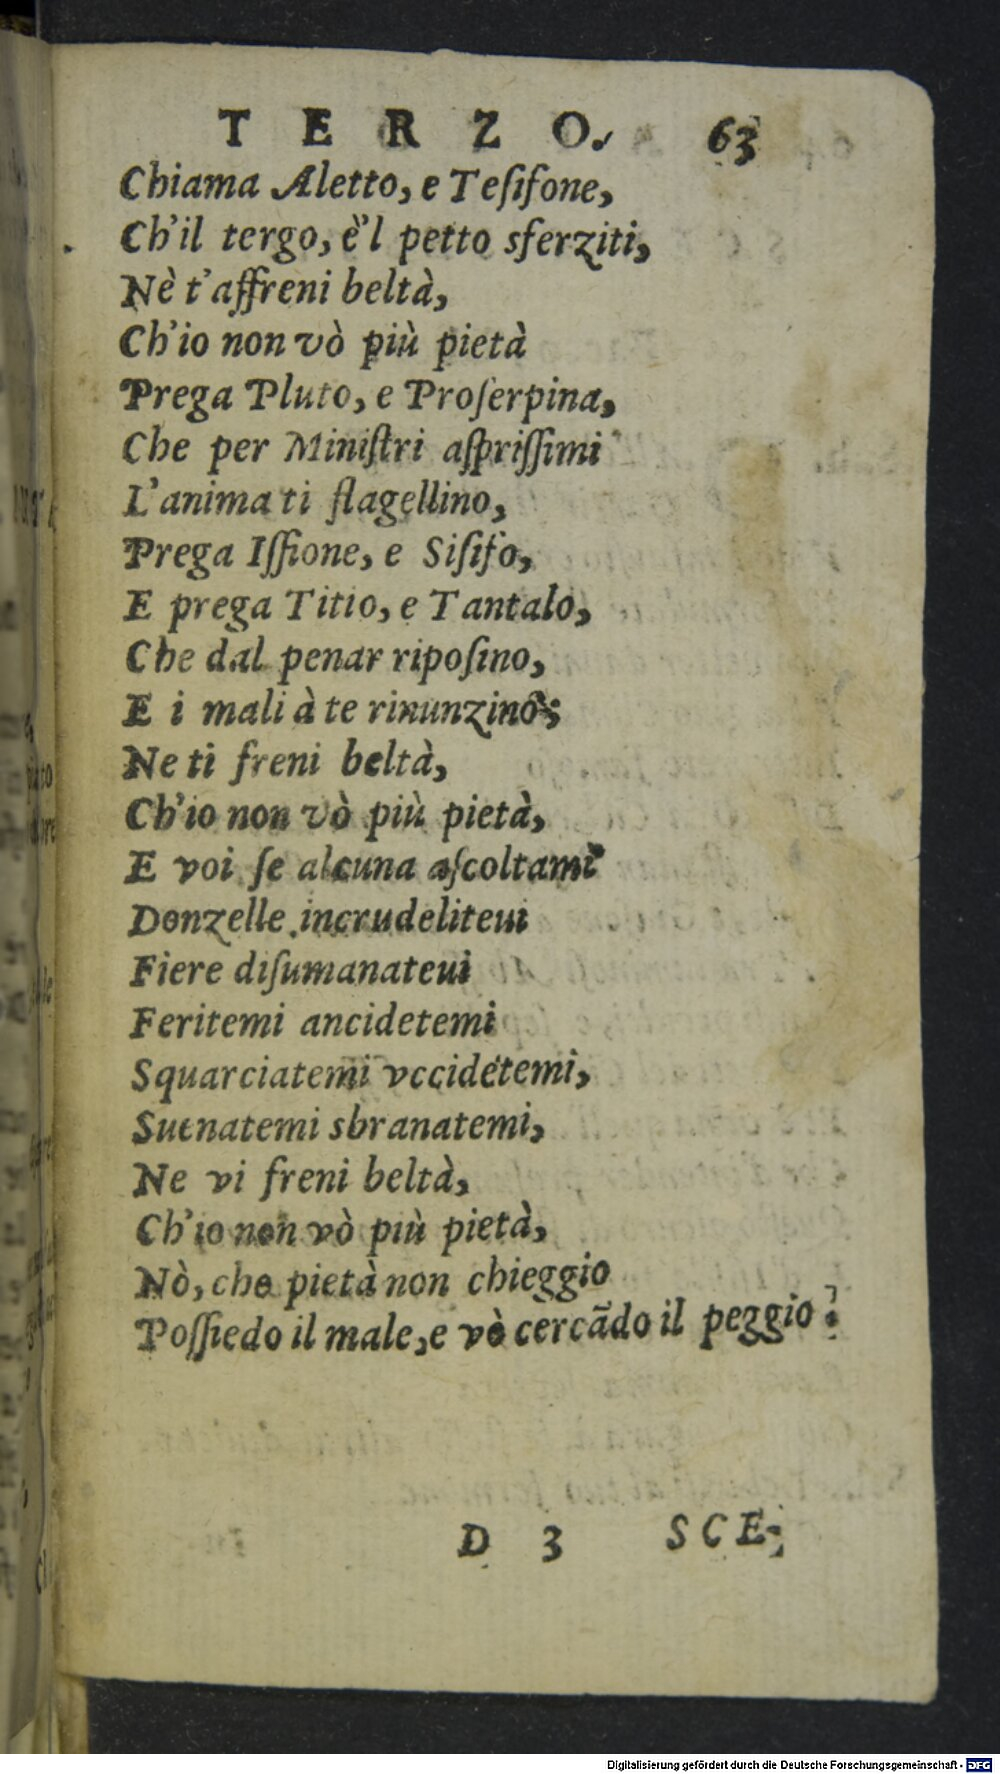 TERZO. 63
Chiama Aletto, e Teſifone,
Ch'il tergo, è'l petto sferziti,
Nè t'affreni beltà,
Ch'io non vò più pietà
Prega Pluto, e Proſerpina,
Che per Miniſtri aſpriſſimi
L'anima ti flagellino,
Prega Iſſione, e Siſifo,
E prega Titio, e Tantalo,
Che dal penar ripoſino,
E i mali à te rinunzino;
Ne ti freni beltà,
Ch'io non vò più pietà,
E voi ſe alcuna aſcoltami
Donzelle incrudeliteui
Fiere diſumanateui
Feritemi ancidetemi
Squarciatemi vccidetemi,
Suenatemi sbranatemi,
Ne vi freni beltà,
Ch'io non vò più pietà,
Nò, che pietà non chieggio
Poſſiedo il male, e vò cercãdo il peggio.
D 3 SCE-
Digitalisierung gefördert durch die Deutsche Forschungsgemeinschaft - DFG